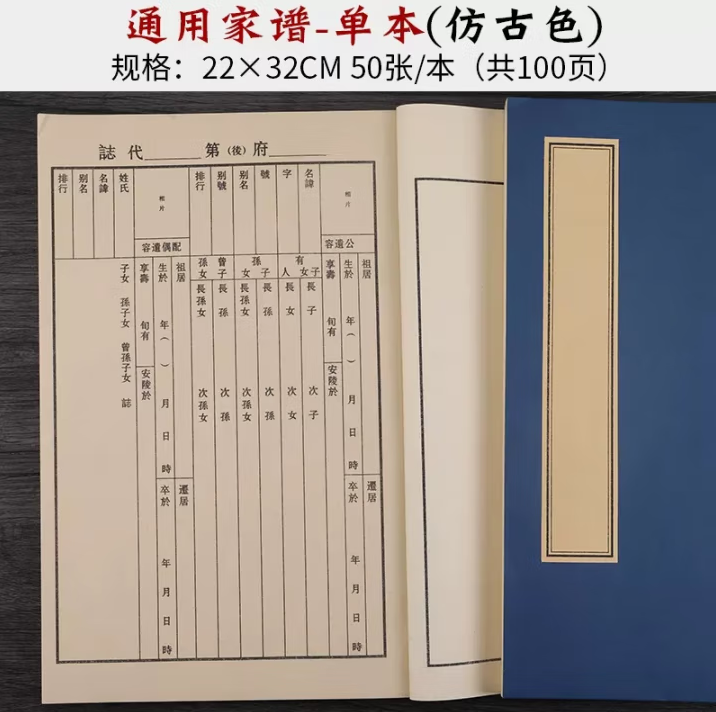 通用家谱-单本(仿古色)
规格：22×32CM 50张/本（共100页）
誌代______第(後)府______
相片
公遺容
祖居
遷居
生於 年( )月 日 時
卒於 年 月 日 時
享壽 旬有
安陵於
名諱
字
號
别名
别號
排行
有子女人
長子 次子
長女 次女
孫子女
長孫 次孫
長孫女 次孫女
曾孫子女
長孫 次孫
長孫女 次孫女
相片
配偶遺容
祖居
遷居
生於 年( )月 日 時
卒於 年 月 日 時
享壽 旬有
安陵於
姓氏
名諱
别名
排行
子女 孫子女 曾孫子女 誌